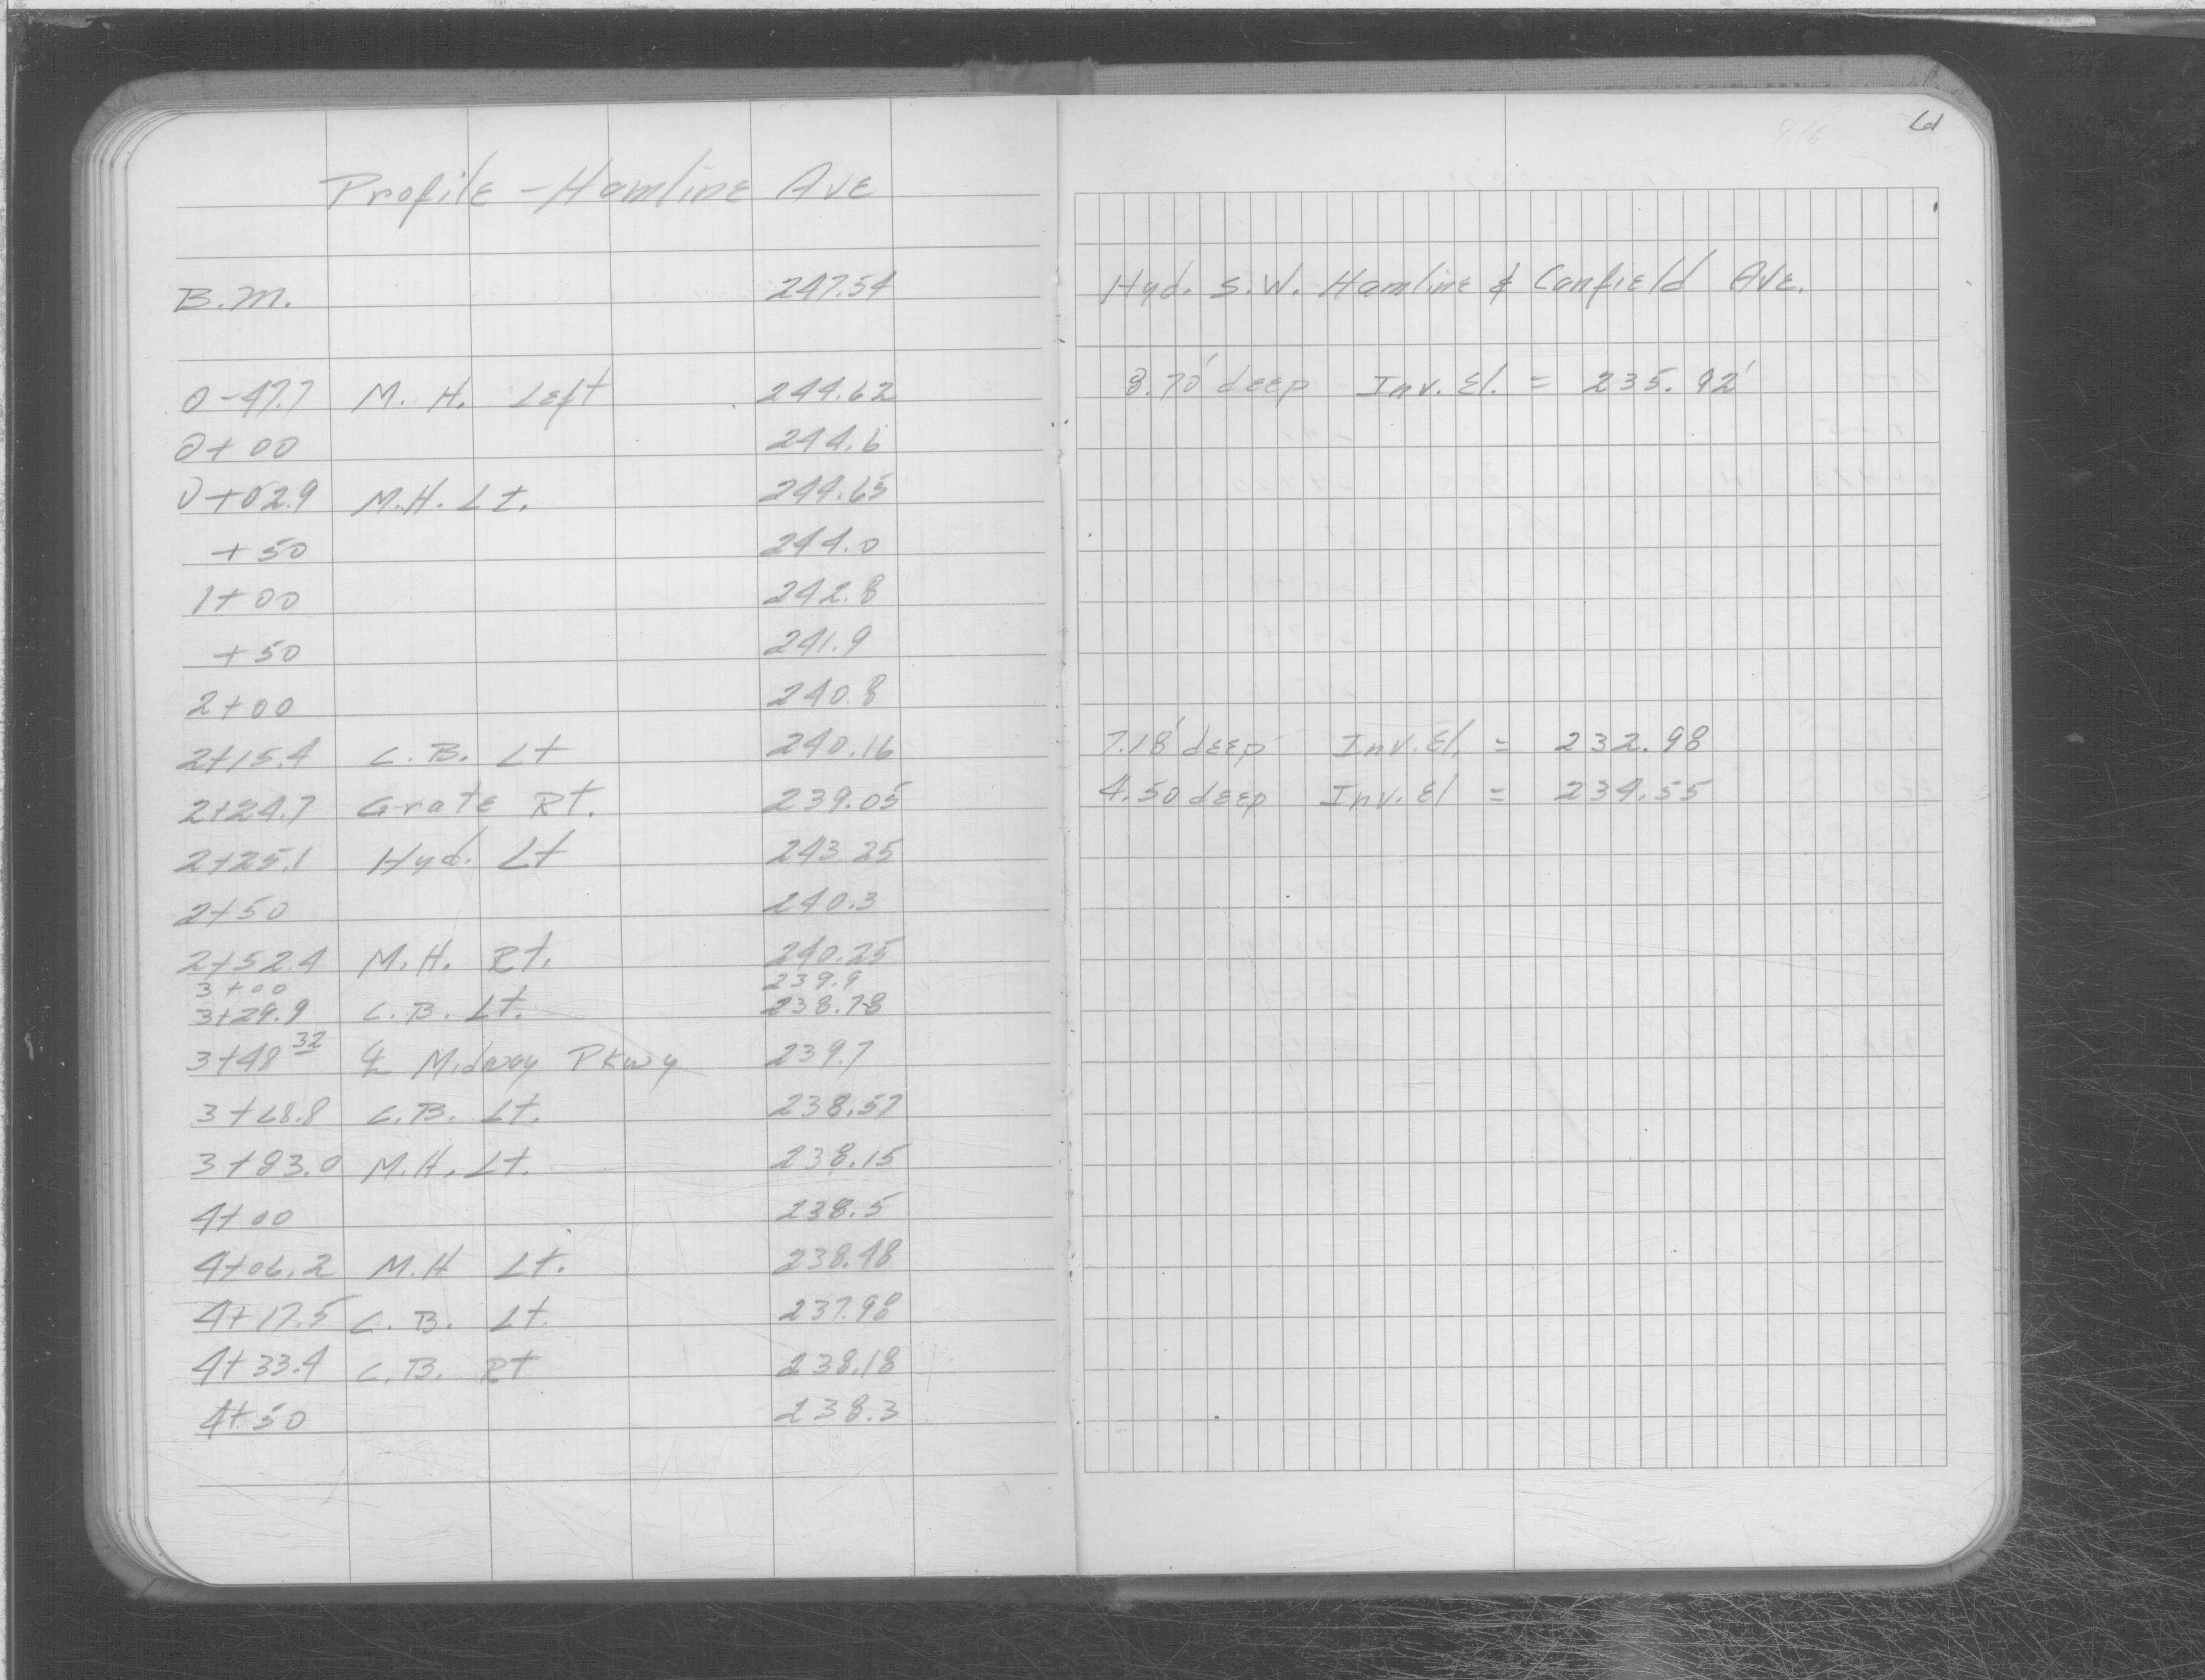 61
Profile - Hamline Ave
B.M. 247.54 Hyd. S.W. Hamline & Canfield Ave.
0-47.7 M. H. Left 244.62 8.70' deep Inv. El. = 235.92'
0+00 244.6
0+02.9 M.H. Lt. 244.65
+50 244.0
1+00 242.8
+50 241.9
2+00 240.8
2+15.4 C.B. Lt 240.16 7.18' deep Inv. El. = 232.98
2+24.7 Grate Rt. 239.05 4.50 deep Inv. El = 234.55
2+25.1 Hyd. Lt 243.25
2+50 240.3
2+52.4 M.H. Rt. 240.25
3+00 239.9
3+29.9 C.B. Lt. 238.78
3+48 32 ℄ Midway Pkwy 239.7
3+68.8 C.B. Lt. 238.57
3+83.0 M.H. Lt. 238.15
4+00 238.5
4+06.2 M.H Lt. 238.48
4+17.5 C.B. Lt. 237.98
4+33.4 C.B. Rt 238.18
4+50 238.3